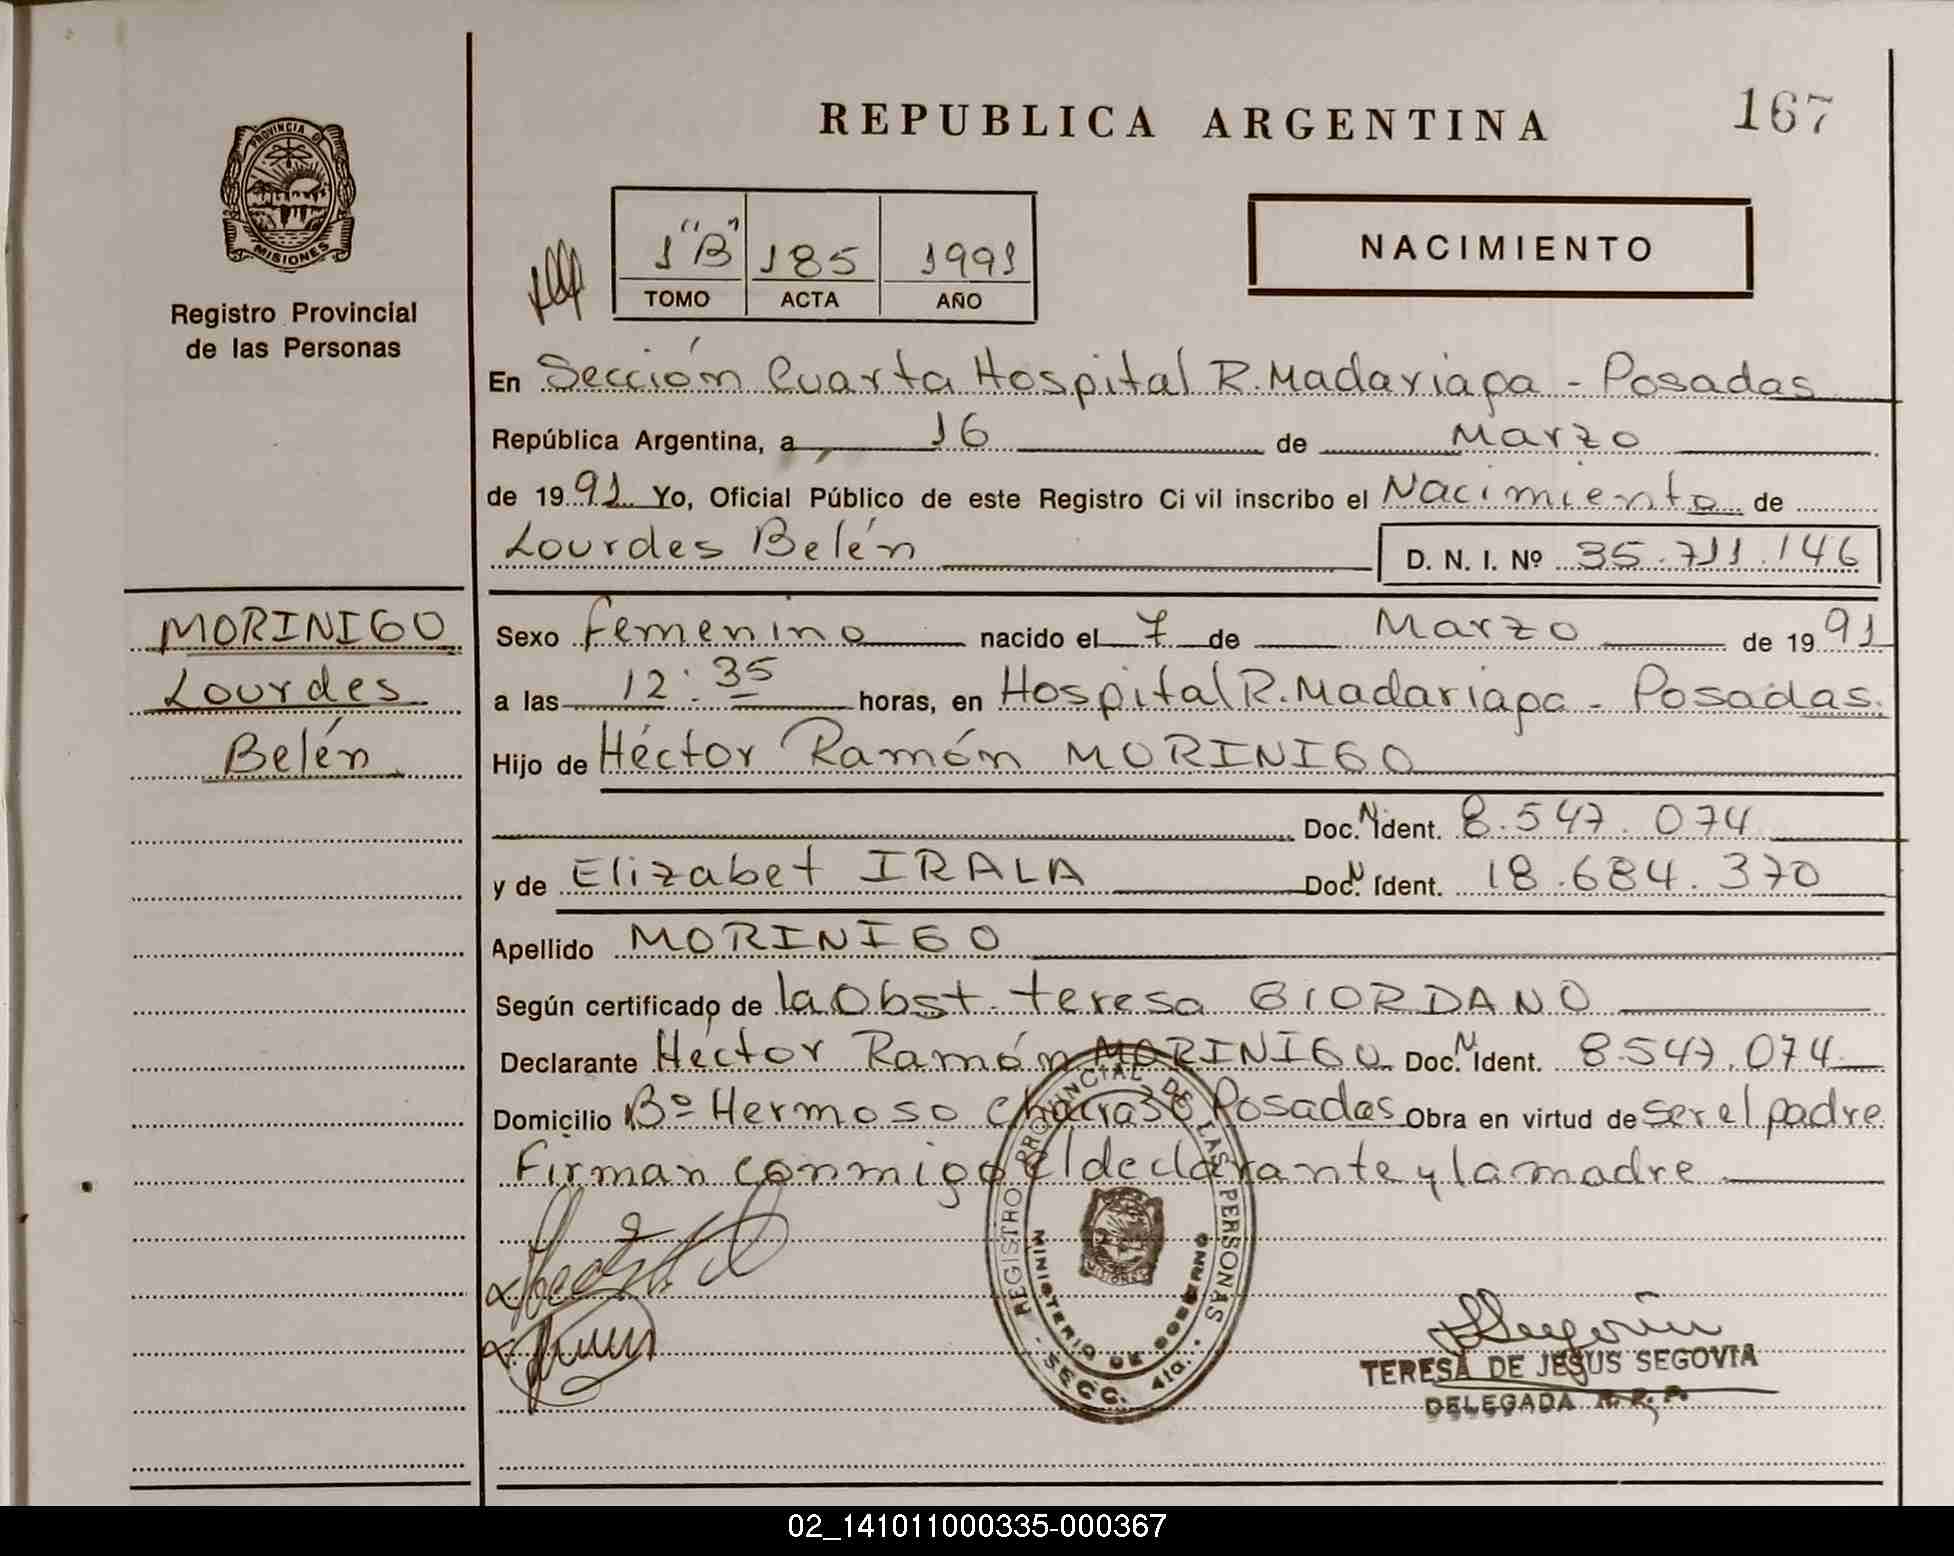 REPUBLICA ARGENTINA
167
PROVINCIA DE
MISIONES
Registro Provincial
de las Personas
1 "B" 185 1991
TOMO ACTA AÑO
NACIMIENTO
En Sección Cuarta Hospital R. Madariaga - Posadas
República Argentina, a 16 de Marzo
de 1991 Yo, Oficial Público de este Registro Civil inscribo el Nacimiento de
Lourdes Belén D. N. I. Nº 35.711.146
MORINIGO
Lourdes
Belén
Sexo Femenino nacido el 7 de Marzo de 1991
a las 12:35 horas, en Hospital R. Madariaga - Posadas.
Hijo de Héctor Ramón MORINIGO
Doc. N Ident. 8.547.074
y de Elizabet IRALA Doc. N Ident. 18.684.370
Apellido MORINIGO
Según certificado de la Obst. teresa GIORDANO
Declarante Héctor Ramón MORINIGO Doc. N Ident. 8.547.074
Domicilio Bº Hermoso Chacra 36 Posadas Obra en virtud de ser el padre
Firman conmigo el declarante y la madre
REGISTRO PROVINCIAL DE LAS PERSONAS
MINISTERIO DE GOBIERNO
SECC. 4ta.
TERESA DE JESUS SEGOVIA
DELEGADA R. R. P.
02_141011000335-000367